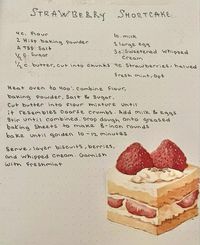 STRAWBERRY SHORTCAKE
4c. flour
2 tbsp baking powder
4 tsp salt
1/2 c. sugar
1/2 c. butter, cut into chunks
1c. milk
1 large egg
3c. sweetened whipped cream
4c. strawberries, halved
fresh mint, opt
Heat oven to 400°. Combine flour,
baking powder, salt & sugar.
Cut butter into flour mixture until
it resembles coarse crumbs. Add milk & eggs
Stir until combined. Drop dough onto greased
baking sheets to make 8-inch rounds
bake until golden 10-12 minutes
Serve: layer biscuits, berries,
and whipped cream. Garnish
with fresh mint